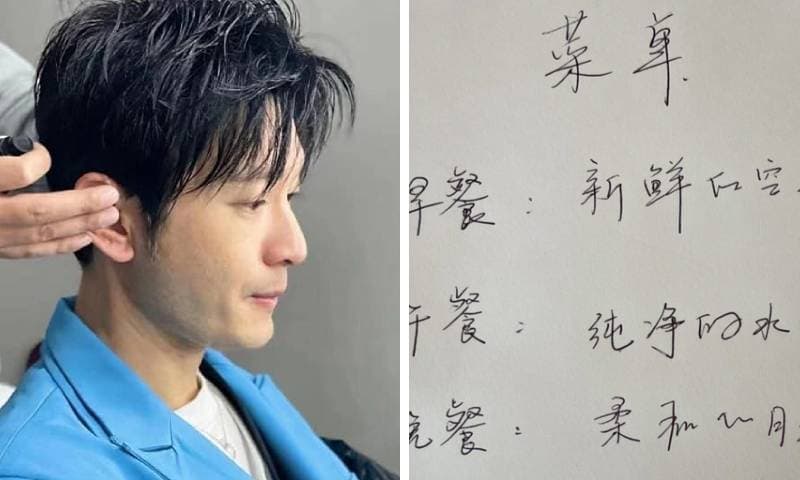 菜单
早餐：新鲜的空
午餐：纯净的水
晚餐：柔和的月